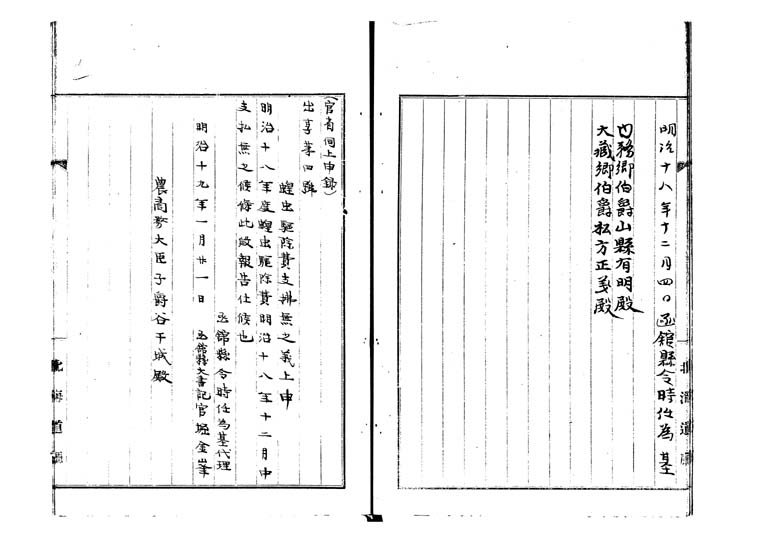 明治十八年十二月四日函館縣令時任為基
内務卿伯爵山縣有明殿
大藏卿伯爵松方正義殿
(官省伺上申錄)
出享第四號
蝗虫驅除費支拂無之義上申
明治十八年度蝗虫驅除費明治十八年十二月中
支払無之候條此段報告仕候也
函館縣令時任為基代理
明治十九年一月廿一日 函館縣大書記官堀金峯
農商務大臣子爵谷干城殿
北海道廳
北海道廳